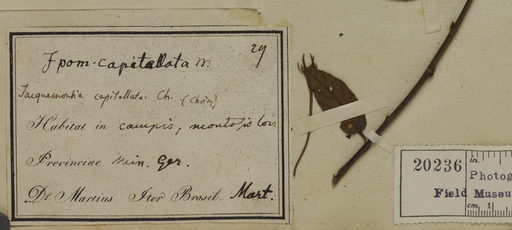 Ipom. capitellata m. 29
Jacquemontia capitellata Ch. (Chois)
Habitat in campis, montosis locis
Provinciae Min. Ger.
Dr Martius Iter Brasil. Mart.
20236
in.
Photog
Field Museu
cm. 1